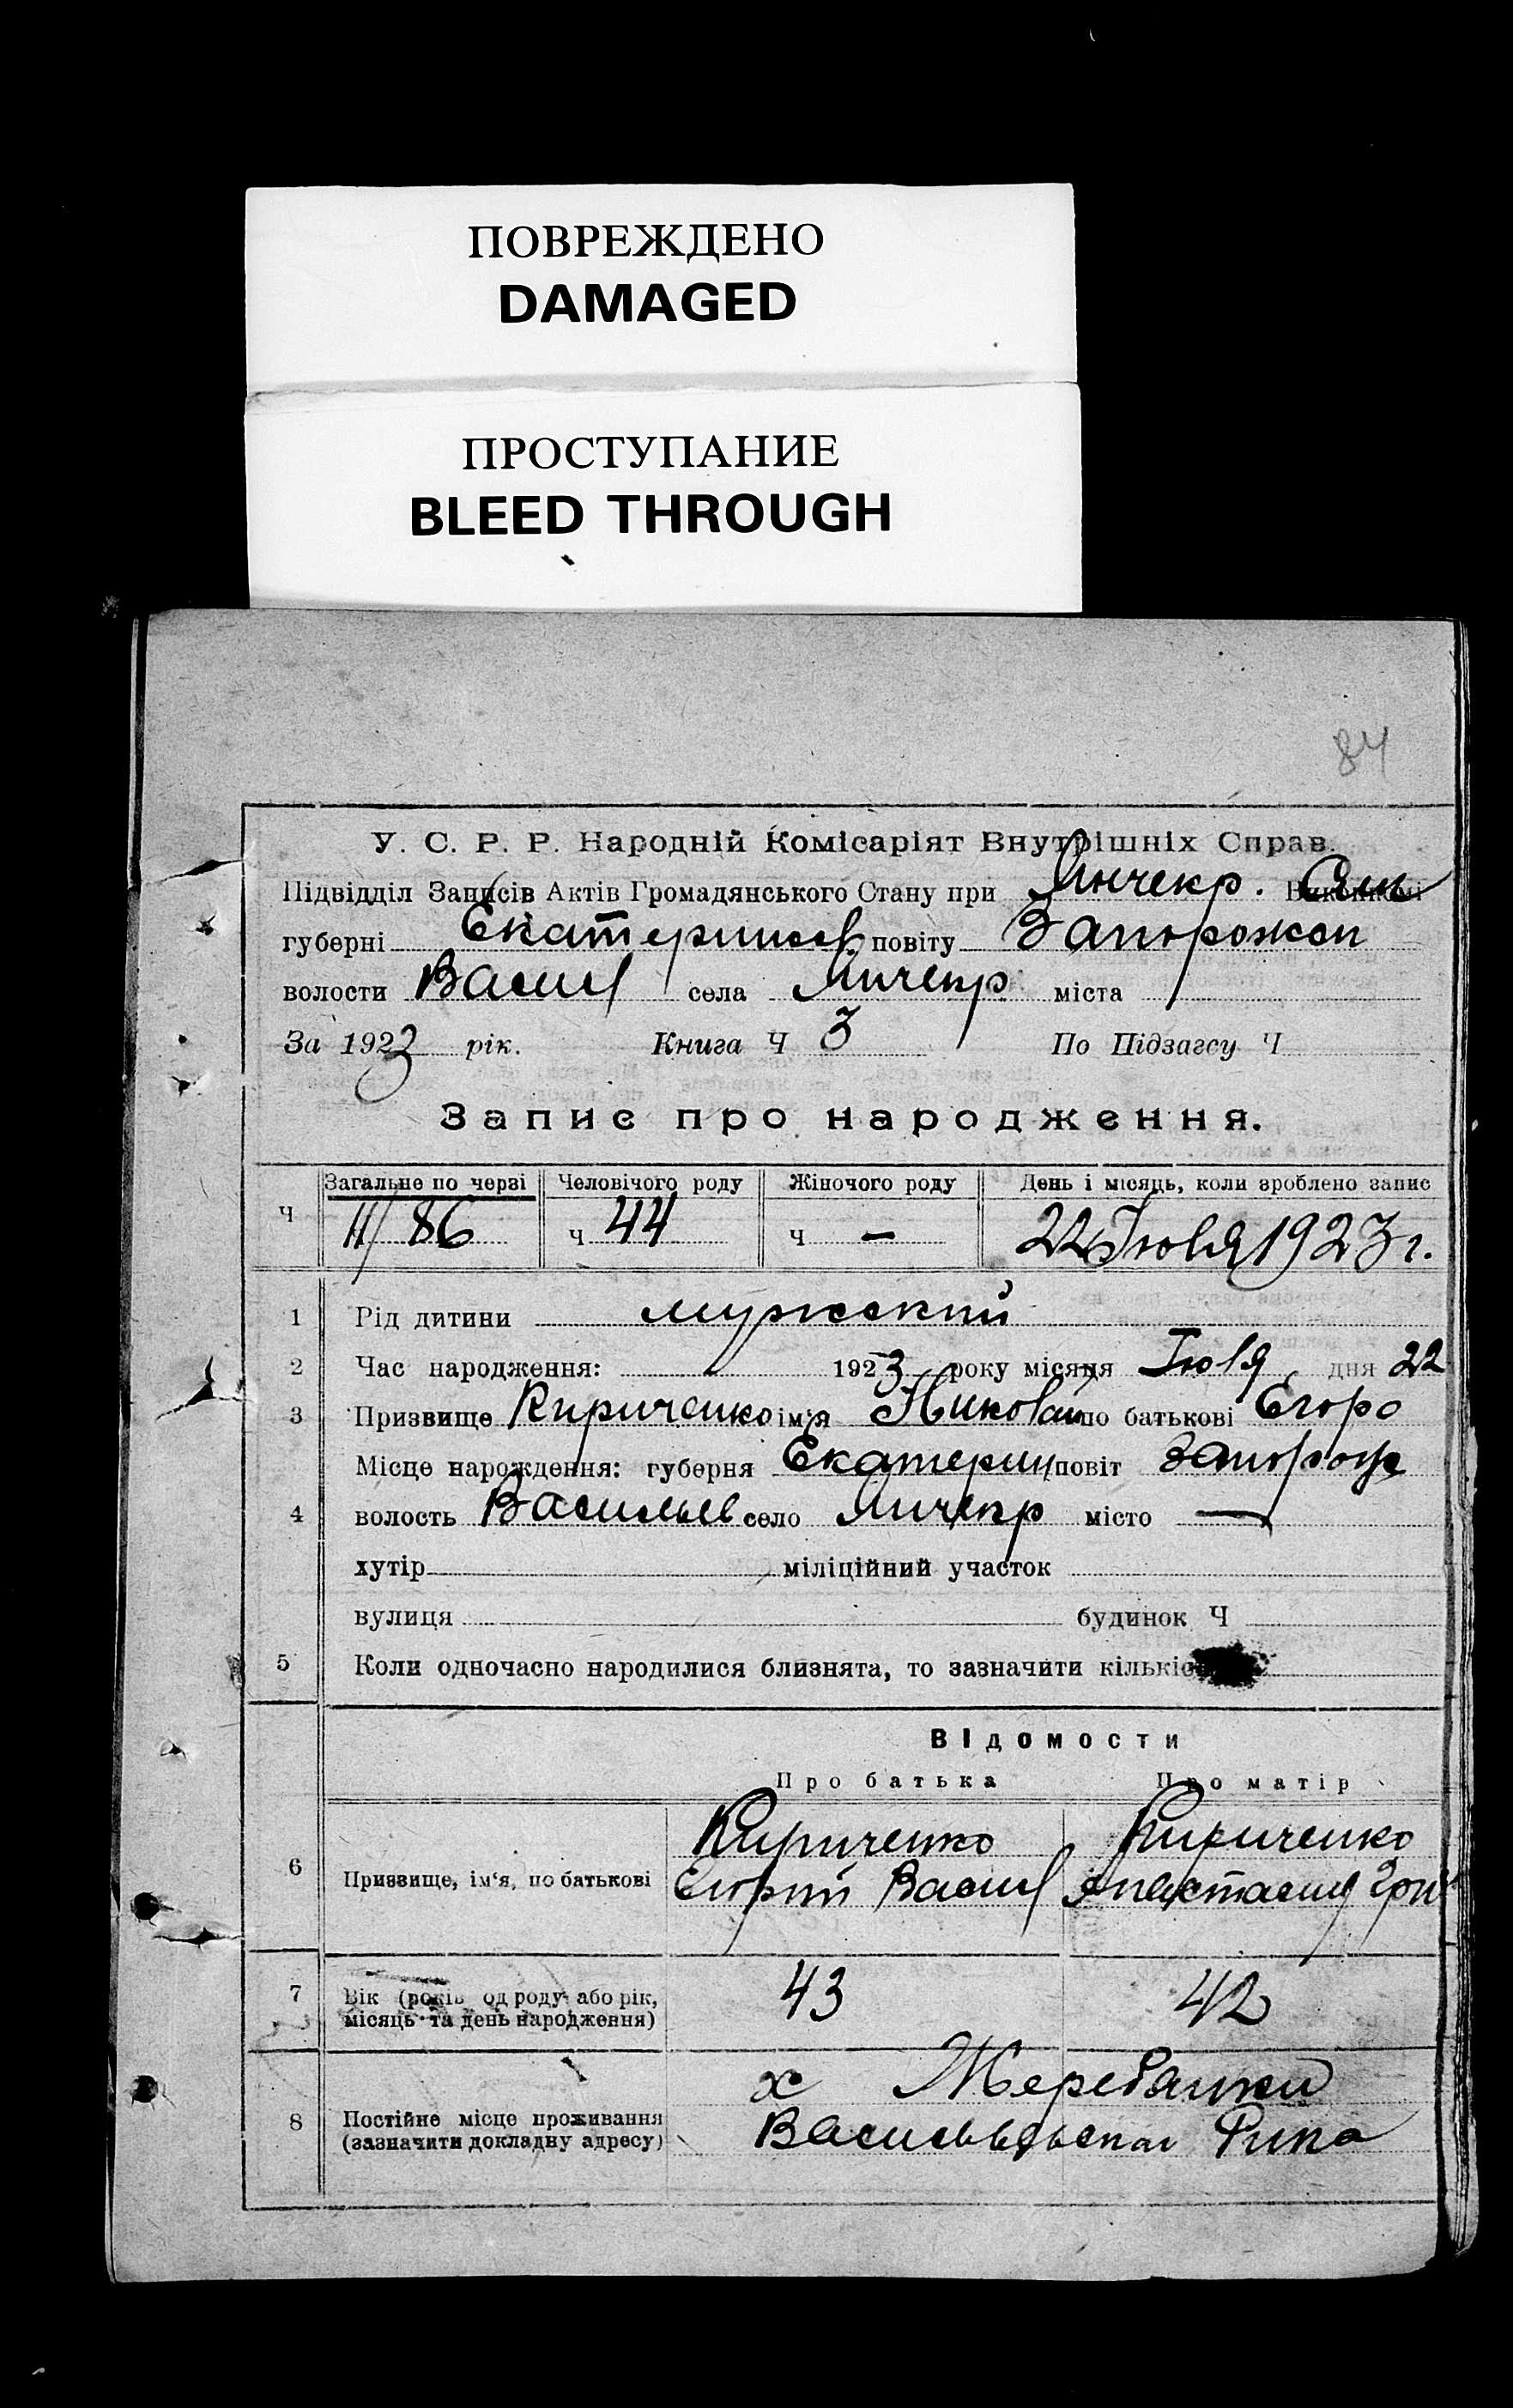 ПОВРЕЖДЕНО
DAMAGED
ПРОСТУПАНИЕ
BLEED THROUGH
84
У. С. Р. Р. Народній Комісаріят Внутрішніх Справ.
Підвідділ Записів Актів Громадянського Стану при Янчекр.
губерні Екатеринослав повіту Запорожск
волости Васил села Янчекр міста
За 1923 рік. Книга Ч 3 По Підзагсу Ч
Запис про народження.
Загальне по черзі Человічого роду Жіночого роду День і місяць, коли зроблено запис
Ч 11/86 ч 44 ч — 22 Июля 1923 г.
1 Рід дитини мужеский
2 Час народження: 1923 року місяця Июля дня 22
3 Призвище Кириченко ім'я Николай по батькові Егоро
Місце нарождення: губерня Екатерин повіт Запорож
4 волость Васильев село Янчекр місто —
хутір міліційний участок
вулиця будинок Ч
5 Коли одночасно народилися близнята, то зазначити кількіс
Відомости
Про батька Про матір
Кириченко Кириченко
6 Призвище, ім'я, по батькові Егорий Васил Анастасия Гри
7 Вік (років од роду або рік, 43 42
місяць та день народження)
х Жеребянки
8 Постійне місце проживання
(зазначити докладну адресу)